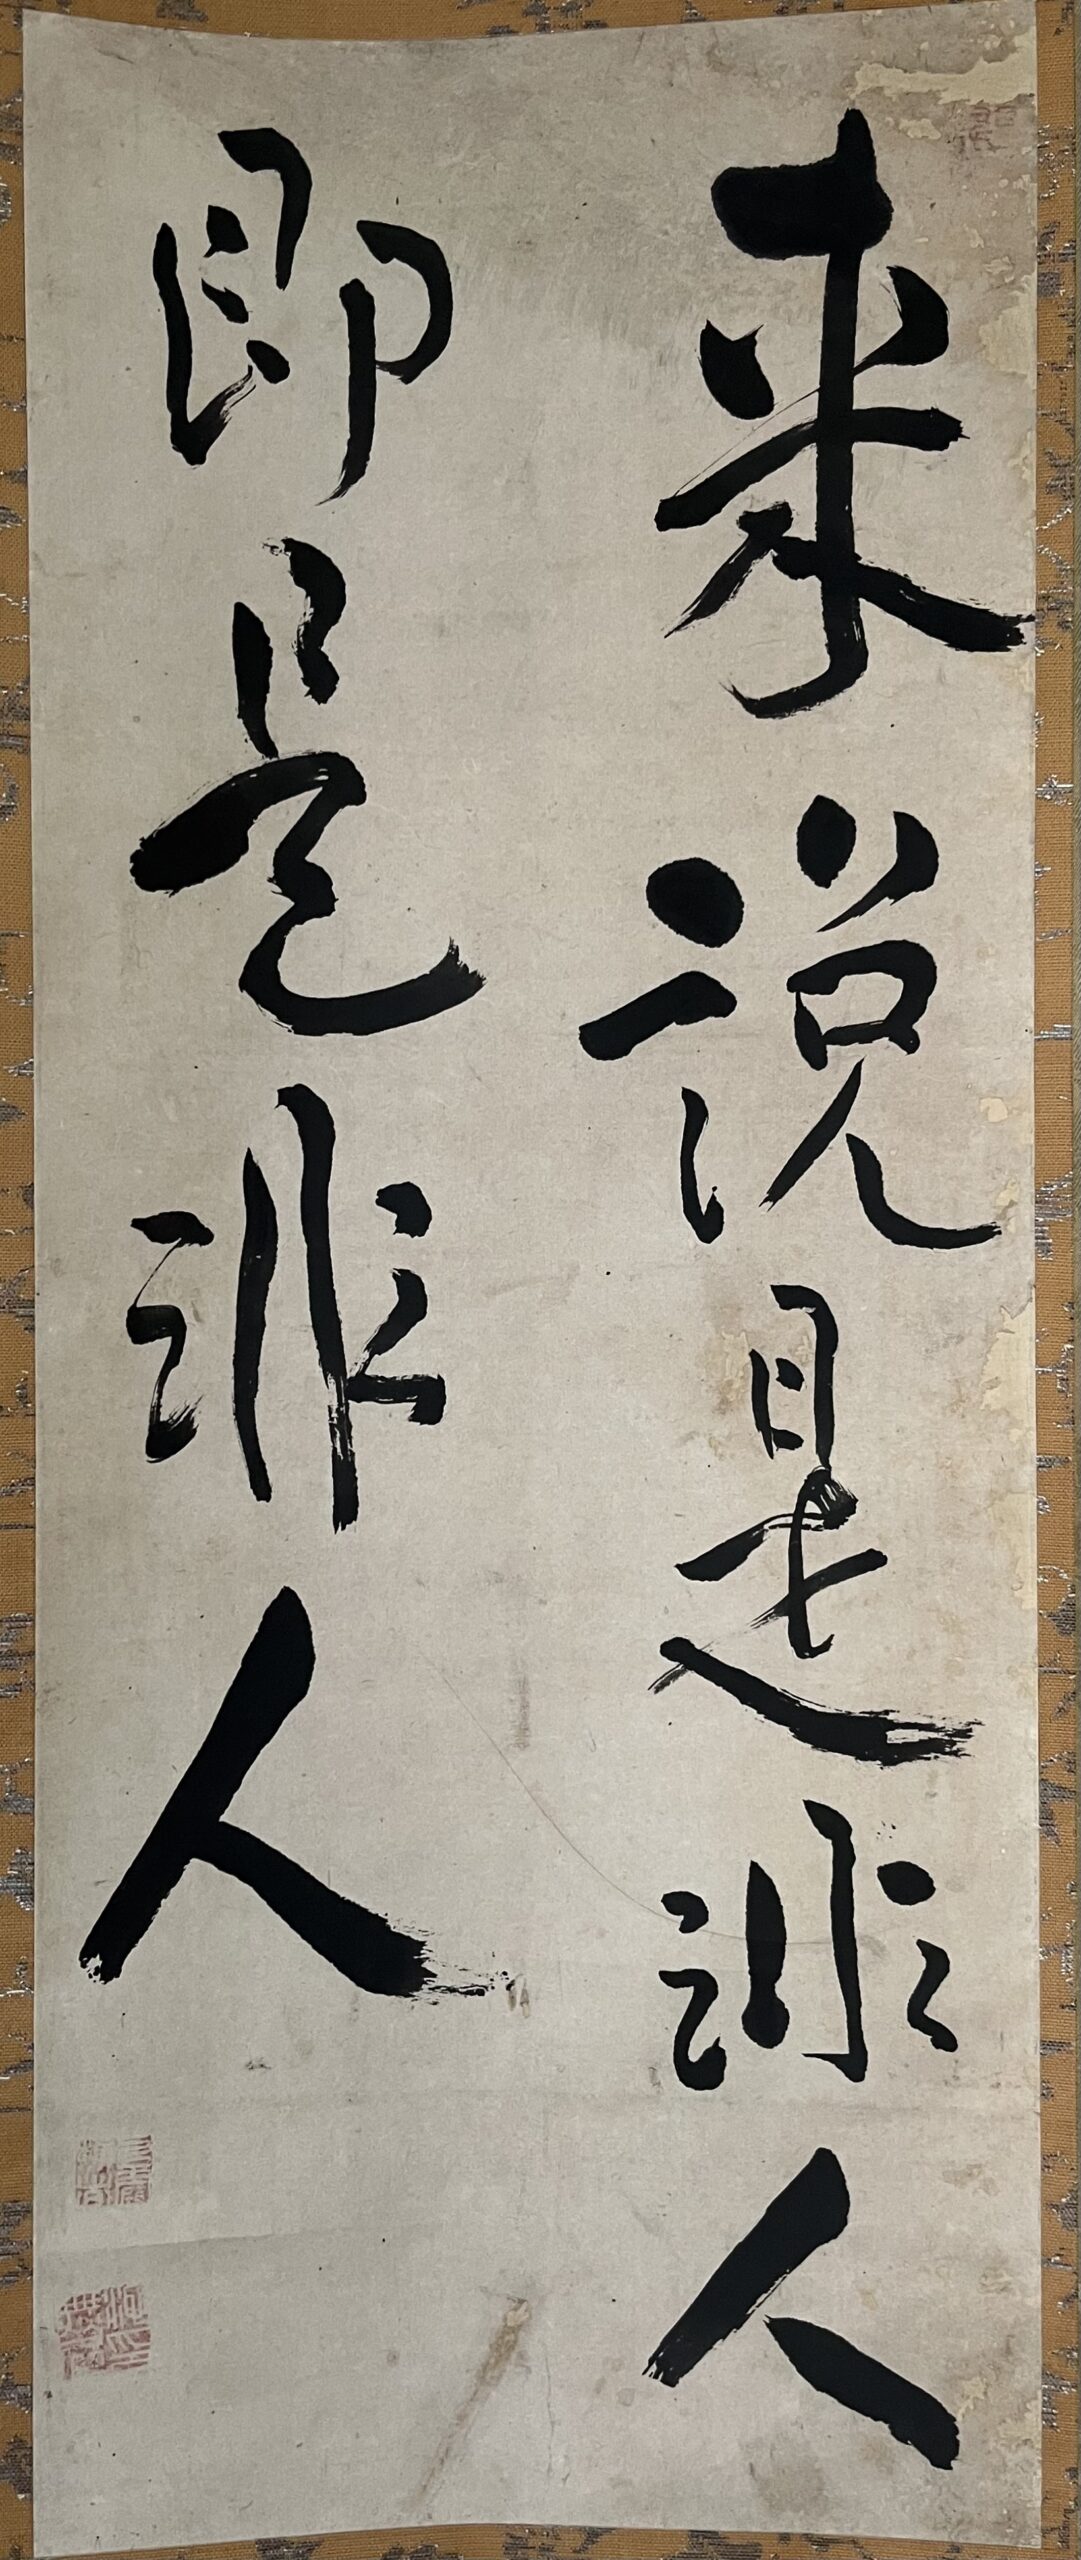 来説是非人
即是非人